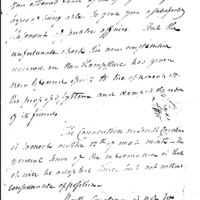 degree of being able to give you a satisfactory
statement of public affairs. But the
unfortunate check the new constitution
received in New Hampshire has given
new life and spirits to the opponents of
the proposed System and damped the ardor
of its friends.
The Convention in South Carolina
is to meet on the 12th of next month - the
general tenor of the information is that
it will be adopted there, but not without
considerable opposition.
North Carolina is